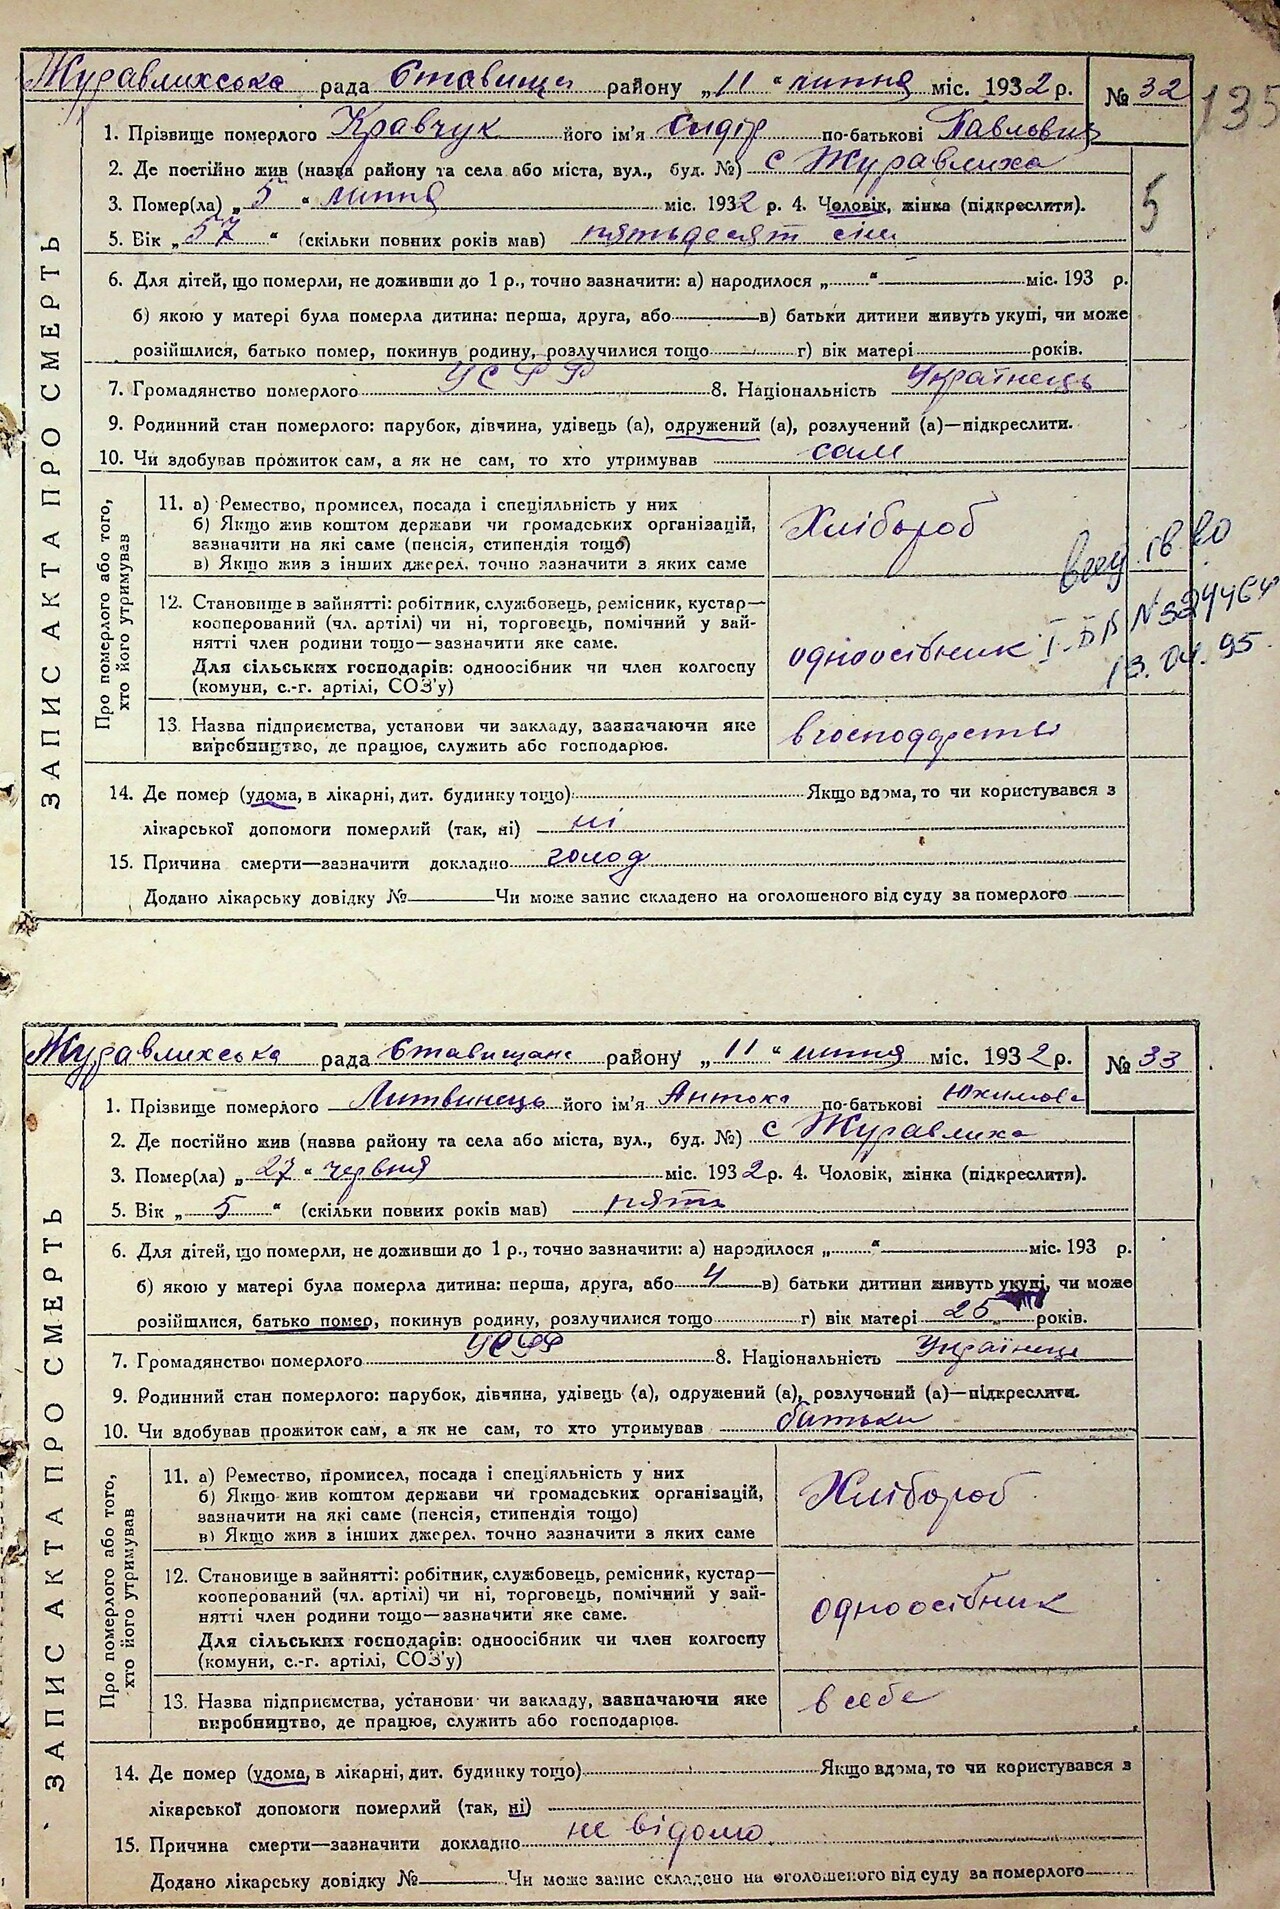 Журавлихська рада Ставищен району „11“ липня міс. 1932 р. № 32
135
1. Прізвище померлого Кравчук його ім'я Сидір по-батькові Павлович
2. Де постійно жив (назва району та села або міста, вул., буд. №) с Журавлиха
3. Помер(ла) „5“ липня міс. 1932 р. 4. Чоловік, жінка (підкреслити).
5
5. Вік „57“ (скільки повних років мав) пятьдесят сім
6. Для дітей, що померли, не доживши до 1 р., точно зазначити: а) народилося „ “ міс. 193 р.
б) якою у матері була померла дитина: перша, друга, або — в) батьки дитини живуть укупі, чи може
розійшлися, батько помер, покинув родину, розлучилися тощо — г) вік матері — років.
7. Громадянство померлого УСРР 8. Національність Українець
9. Родинний стан померлого: парубок, дівчина, удівець (а), одружений (а), розлучений (а)—підкреслити.
10. Чи здобував прожиток сам, а як не сам, то хто утримував сам
ЗАПИС АКТА ПРО СМЕРТЬ
Про померлого або того,
хто його утримував
11. а) Ремество, промисел, посада і спеціяльність у них
б) Якщо жив коштом держави чи громадських організацій,
зазначити на які саме (пенсія, стипендія тощо)
в) Якщо жив з інших джерел, точно зазначити з яких саме
Хлібороб
12. Становище в зайнятті: робітник, службовець, ремісник, кустар—
кооперований (чл. артілі) чи ні, торговець, помічний у зай-
нятті член родини тощо—зазначити яке саме.
Для сільських господарів: одноосібник чи член колгоспу
(комуни, с.-г. артілі, СОЗ'у)
одноосібник
I-БК №
13.04.95.
13. Назва підприємства, установи чи закладу, зазначаючи яке
виробництво, де працює, служить або господарює.
в господарстві
14. Де помер (удома, в лікарні, дит. будинку тощо) Якщо вдома, то чи користувався з
лікарської допомоги померлий (так, ні) ні
15. Причина смерти—зазначити докладно голод
Додано лікарську довідку № — Чи може запис складено на оголошеного від суду за померлого —
Журавлихська рада Ставищанс району „11“ липня міс. 1932 р. № 33
1. Прізвище померлого Литвинець його ім'я Антоха по-батькові Юхимова
2. Де постійно жив (назва району та села або міста, вул., буд. №) с Журавлиха
3. Помер(ла) „27“ червня міс. 1932 р. 4. Чоловік, жінка (підкреслити).
5. Вік „5“ (скільки повних років мав) пять
6. Для дітей, що померли, не доживши до 1 р., точно зазначити: а) народилося „ “ міс. 193 р.
б) якою у матері була померла дитина: перша, друга, або 4 в) батьки дитини живуть укупі, чи може
розійшлися, батько помер, покинув родину, розлучилися тощо г) вік матері 25 років.
7. Громадянство померлого УСРР 8. Національність Українець
9. Родинний стан померлого: парубок, дівчина, удівець (а), одружений (а), розлучений (а)—підкреслити.
10. Чи здобував прожиток сам, а як не сам, то хто утримував батьки
ЗАПИС АКТА ПРО СМЕРТЬ
Про померлого або того,
хто його утримував
11. а) Ремество, промисел, посада і спеціяльність у них
б) Якщо жив коштом держави чи громадських організацій,
зазначити на які саме (пенсія, стипендія тощо)
в) Якщо жив в інших джерел, точно зазначити з яких саме
Хлібороб
12. Становище в зайнятті: робітник, службовець, ремісник, кустар—
кооперований (чл. артілі) чи ні, торговець, помічний у зай-
нятті член родини тощо—зазначити яке саме.
Для сільських господарів: одноосібник чи член колгоспу
(комуни, с.-г. артілі, СОЗ'у)
одноосібник
13. Назва підприємства, установи чи закладу, зазначаючи яке
виробництво, де працює, служить або господарює.
в себе
14. Де помер (удома, в лікарні, дит. будинку тощо) Якщо вдома, то чи користувався з
лікарської допомоги померлий (так, ні)
15. Причина смерти—зазначити докладно не відомо
Додано лікарську довідку № — Чи може запис складено на оголошеного від суду за померлого —